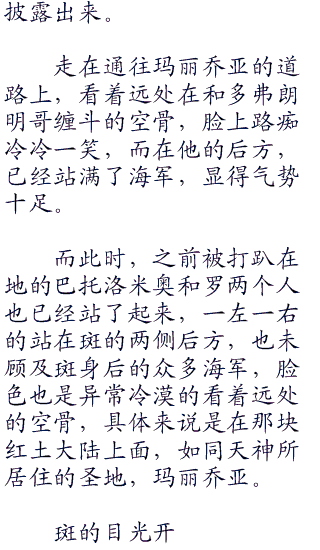 披露出来。
走在通往玛丽乔亚的道
路上，看着远处在和多弗朗
明哥缠斗的空骨，脸上路痴
冷冷一笑，而在他的后方，
已经站满了海军，显得气势
十足。
而此时，之前被打趴在
地的巴托洛米奥和罗两个人
也已经站了起来，一左一右
的站在斑的两侧后方，也未
顾及斑身后的众多海军，脸
色也是异常冷漠的看着远处
的空骨，具体来说是在那块
红土大陆上面，如同天神所
居住的圣地，玛丽乔亚。
斑的目光开